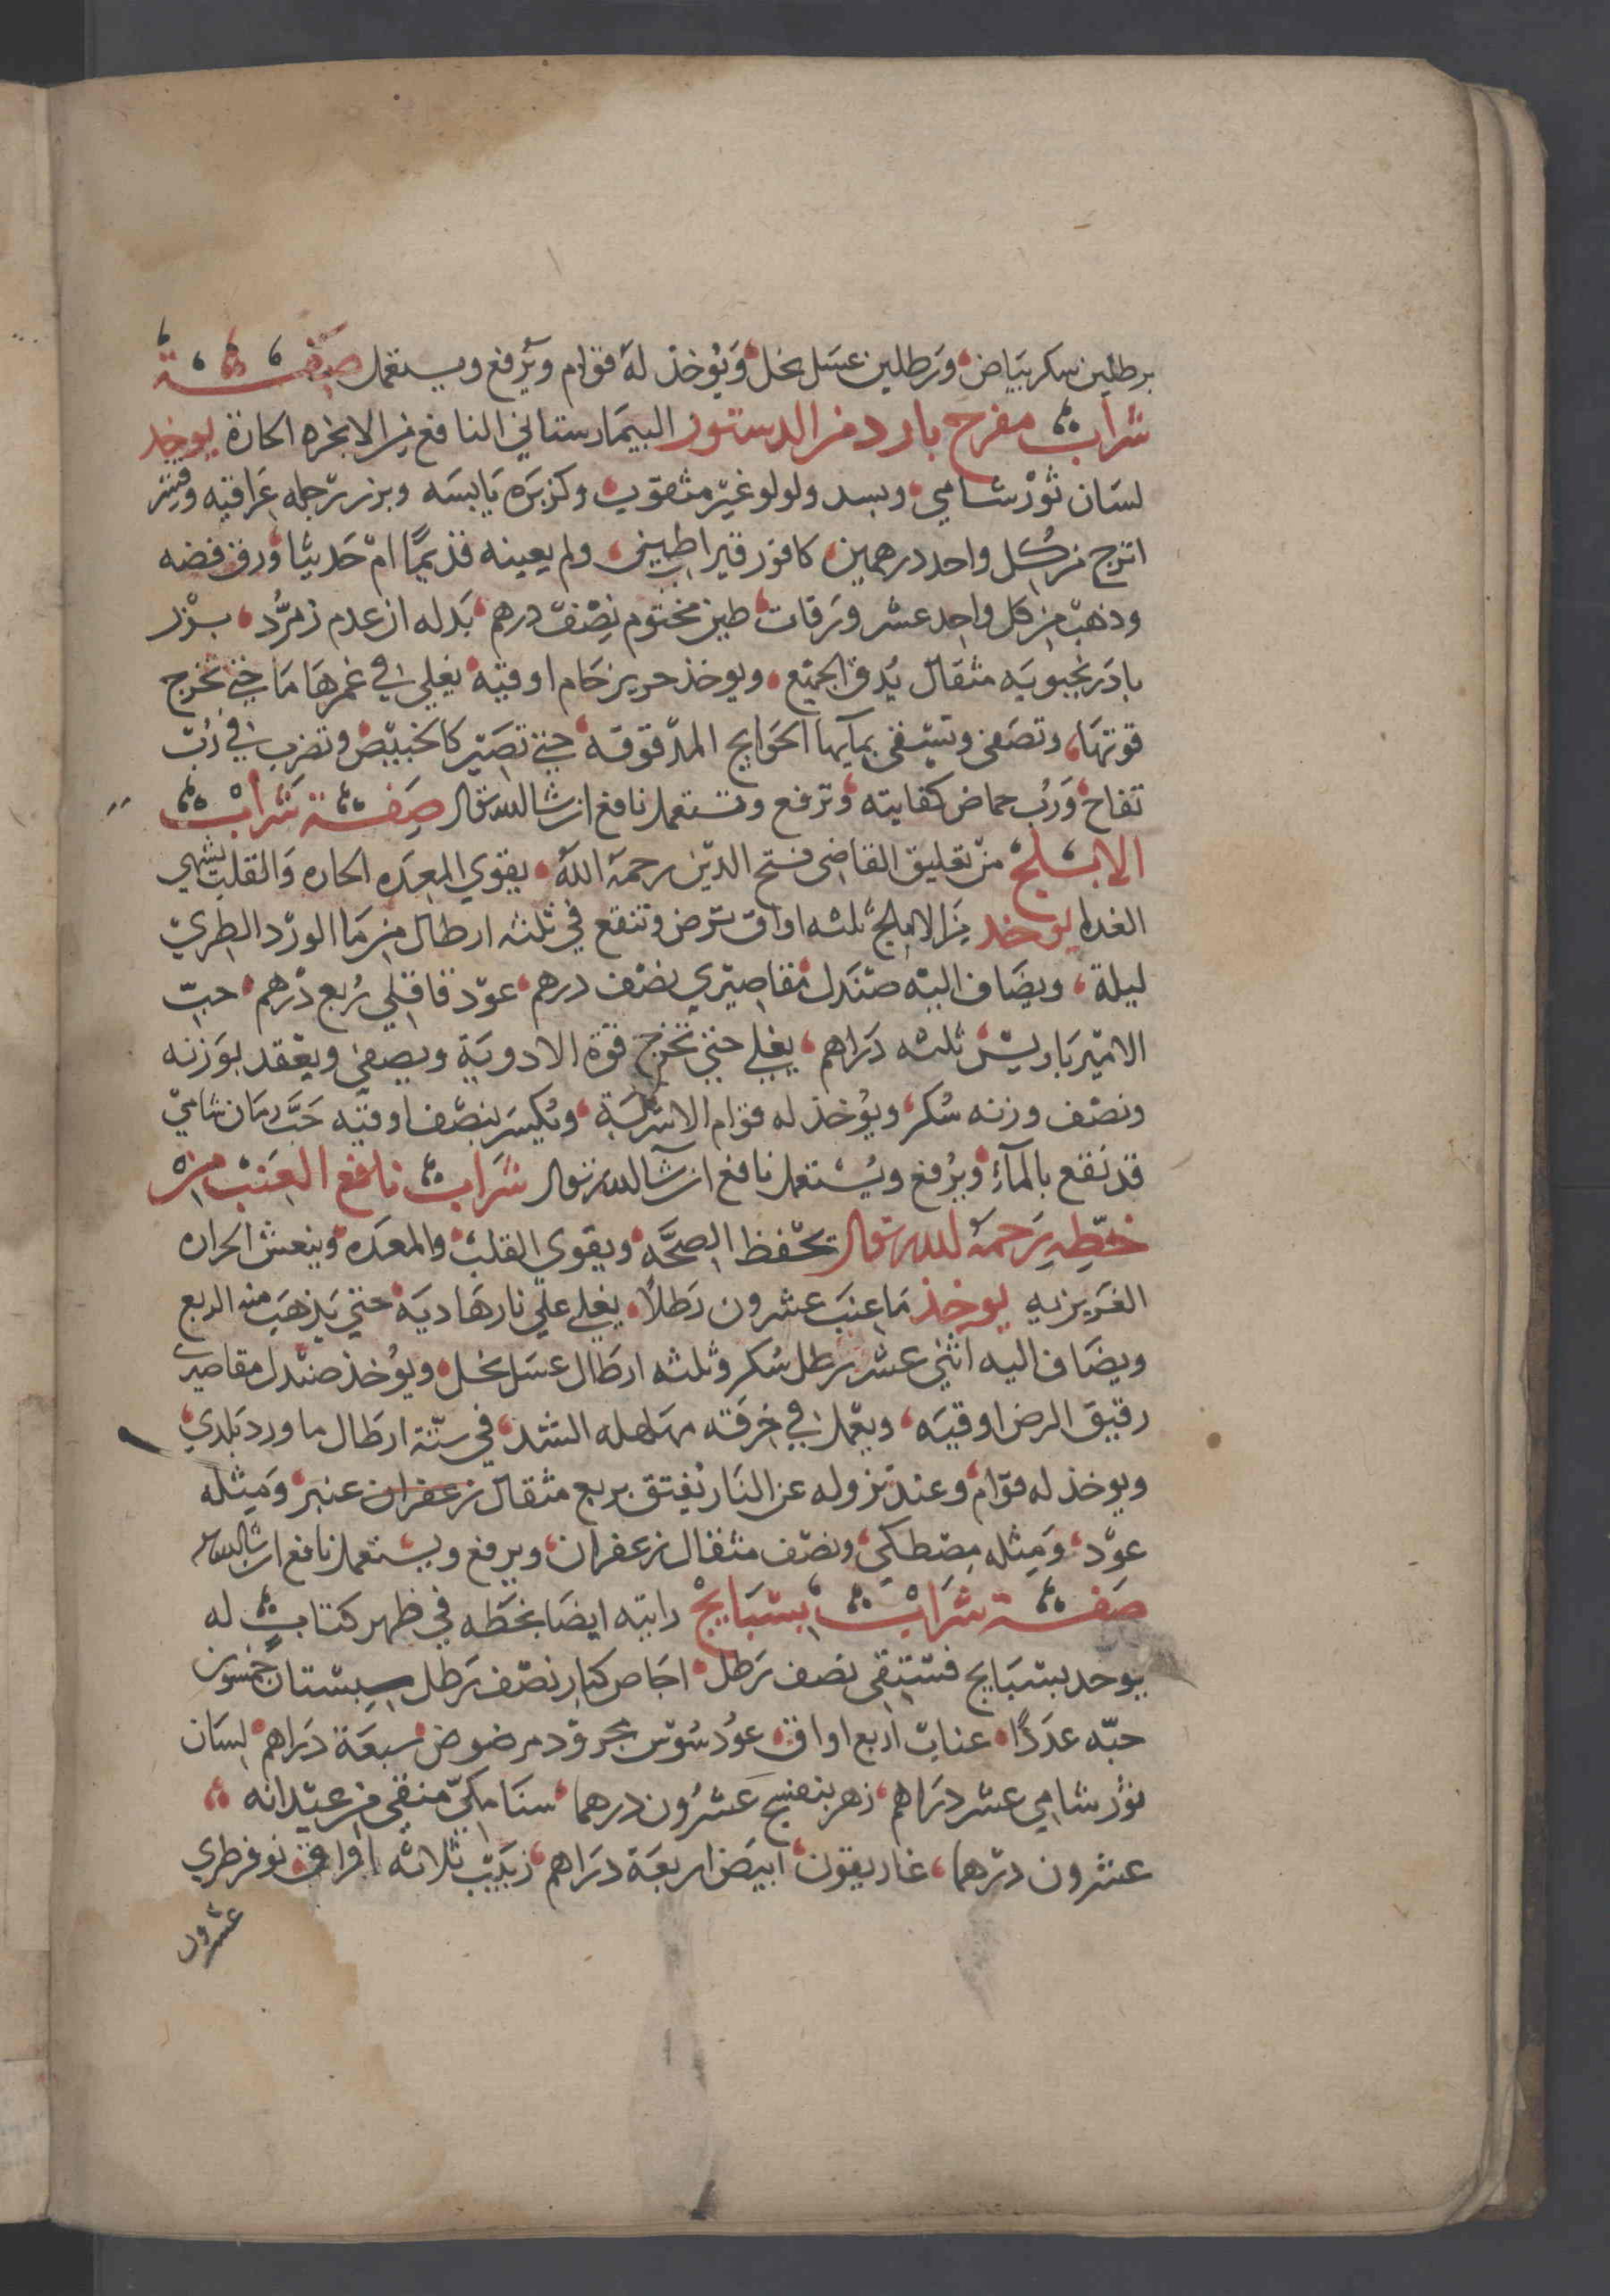 برطلين سكر بياض، ورطلين عسل نحل، ويوخذ له قوام ويرفع ويستعمل صفة
شراب مفرح بارد من الدستور البيمارستاني النافع من الابخره الحارة يوخذ
لسان ثور شامي، وبسد ولولو غير مثقوب، وكزبره يابسه وبزر رجله عراقيه وقشر
اترج من كل واحد درهمين، كافور قيراطين، ولم يعينه قديما ام حديثا، ورق فضه
وذهب من كل واحد عشر ورقات، طين مختوم نصف درهم، بدله ان عدم زمرد، بزر
بادرنجبويه مثقال يدق الجميع، ويوخذ حرير خام اوقيه، يغلي في غمرها ما حتى تخرج
قوتها، وتصفى وتسقى بمآيها الحوايج المدقوقه، حتى تصير كالخبيص وتضرب في رب
تفاح، ورب حماض كفايته، وترفع وتستعمل نافع ان شا الله تعالى صفة شراب
الابلج من تعليق القاضى فتح الدين رحمه الله، يقوي المعده الحاره والقلب يشهي
الغدا يوخذ من الاملج ثلثه اواق ترض وتنقع في ثلثه ارطال من ما الورد الطري
ليلة، ويضاف اليه صندل مقاصيري نصف درهم، عود قاقلي ربع درهم، حب
الاميرباريس ثلثه دراهم، يغلي حتى تخرج قوة الادوية ويصفى ويعقد بوزنه
ونصف وزنه سكر، ويوخذ له قوام الاشربة، ويكسر بنصف اوقيه حب رمان شامي
قد نقع بالمآء، ويرفع ويستعمل نافع ان شآ الله تعالى شراب نافع العنب من
خطه رحمه الله تعالى تحفظ الصحه، ويقوي القلب، والمعده، وينعش الحراره
الغريزيه يوخذ ما عنب عشرون رطلا، يغلي علي نار هاديه، حتي يذهب منه الربع
ويضاف اليه اثني عشر رطل سكر وثلثه ارطال عسل نحل، ويوخذ صندل مقاصيرى
رقيق الرض اوقيه، ويعمل في خرقه مهلهله الشد، في ستة ارطال ما ورد بلدي،
ويوخذ له قوام، وعند نزوله عن النار يفتق بربع مثقال زعفران عنبر، ومثله
عود، ومثله مصطكى، ونصف مثقال زعفران، ويرفع ويستعمل نافع ان شا الله
صفة شراب بسبايج رايته ايضا بخطه في ظهر كتاب له
يوخد بسبايج فستقي نصف رطل، اجاص كبار نصف رطل سبستان خمسون
حبه عددا، عناب اربع اواق، عود سوس مجرود مرضوض سبعة دراهم، لسان
ثور شامي عشر دراهم، زهر بنفسج عشرون درهما، سنا مكي منقى من عيدانه،
عشرون درهما، غاريقون، ابيض اربعة دراهم، زبيب ثلاثه اواق، نوفر طري
عشرون